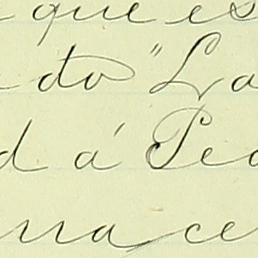 que es
do "La
d á Ped
una ce